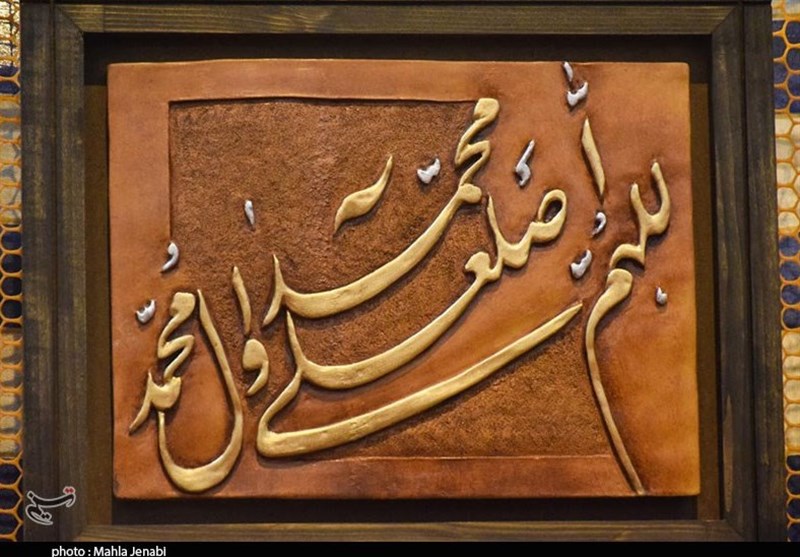 اللهم صل علی محمد وآل محمد
تسنیم
photo : Mahla Jenabi